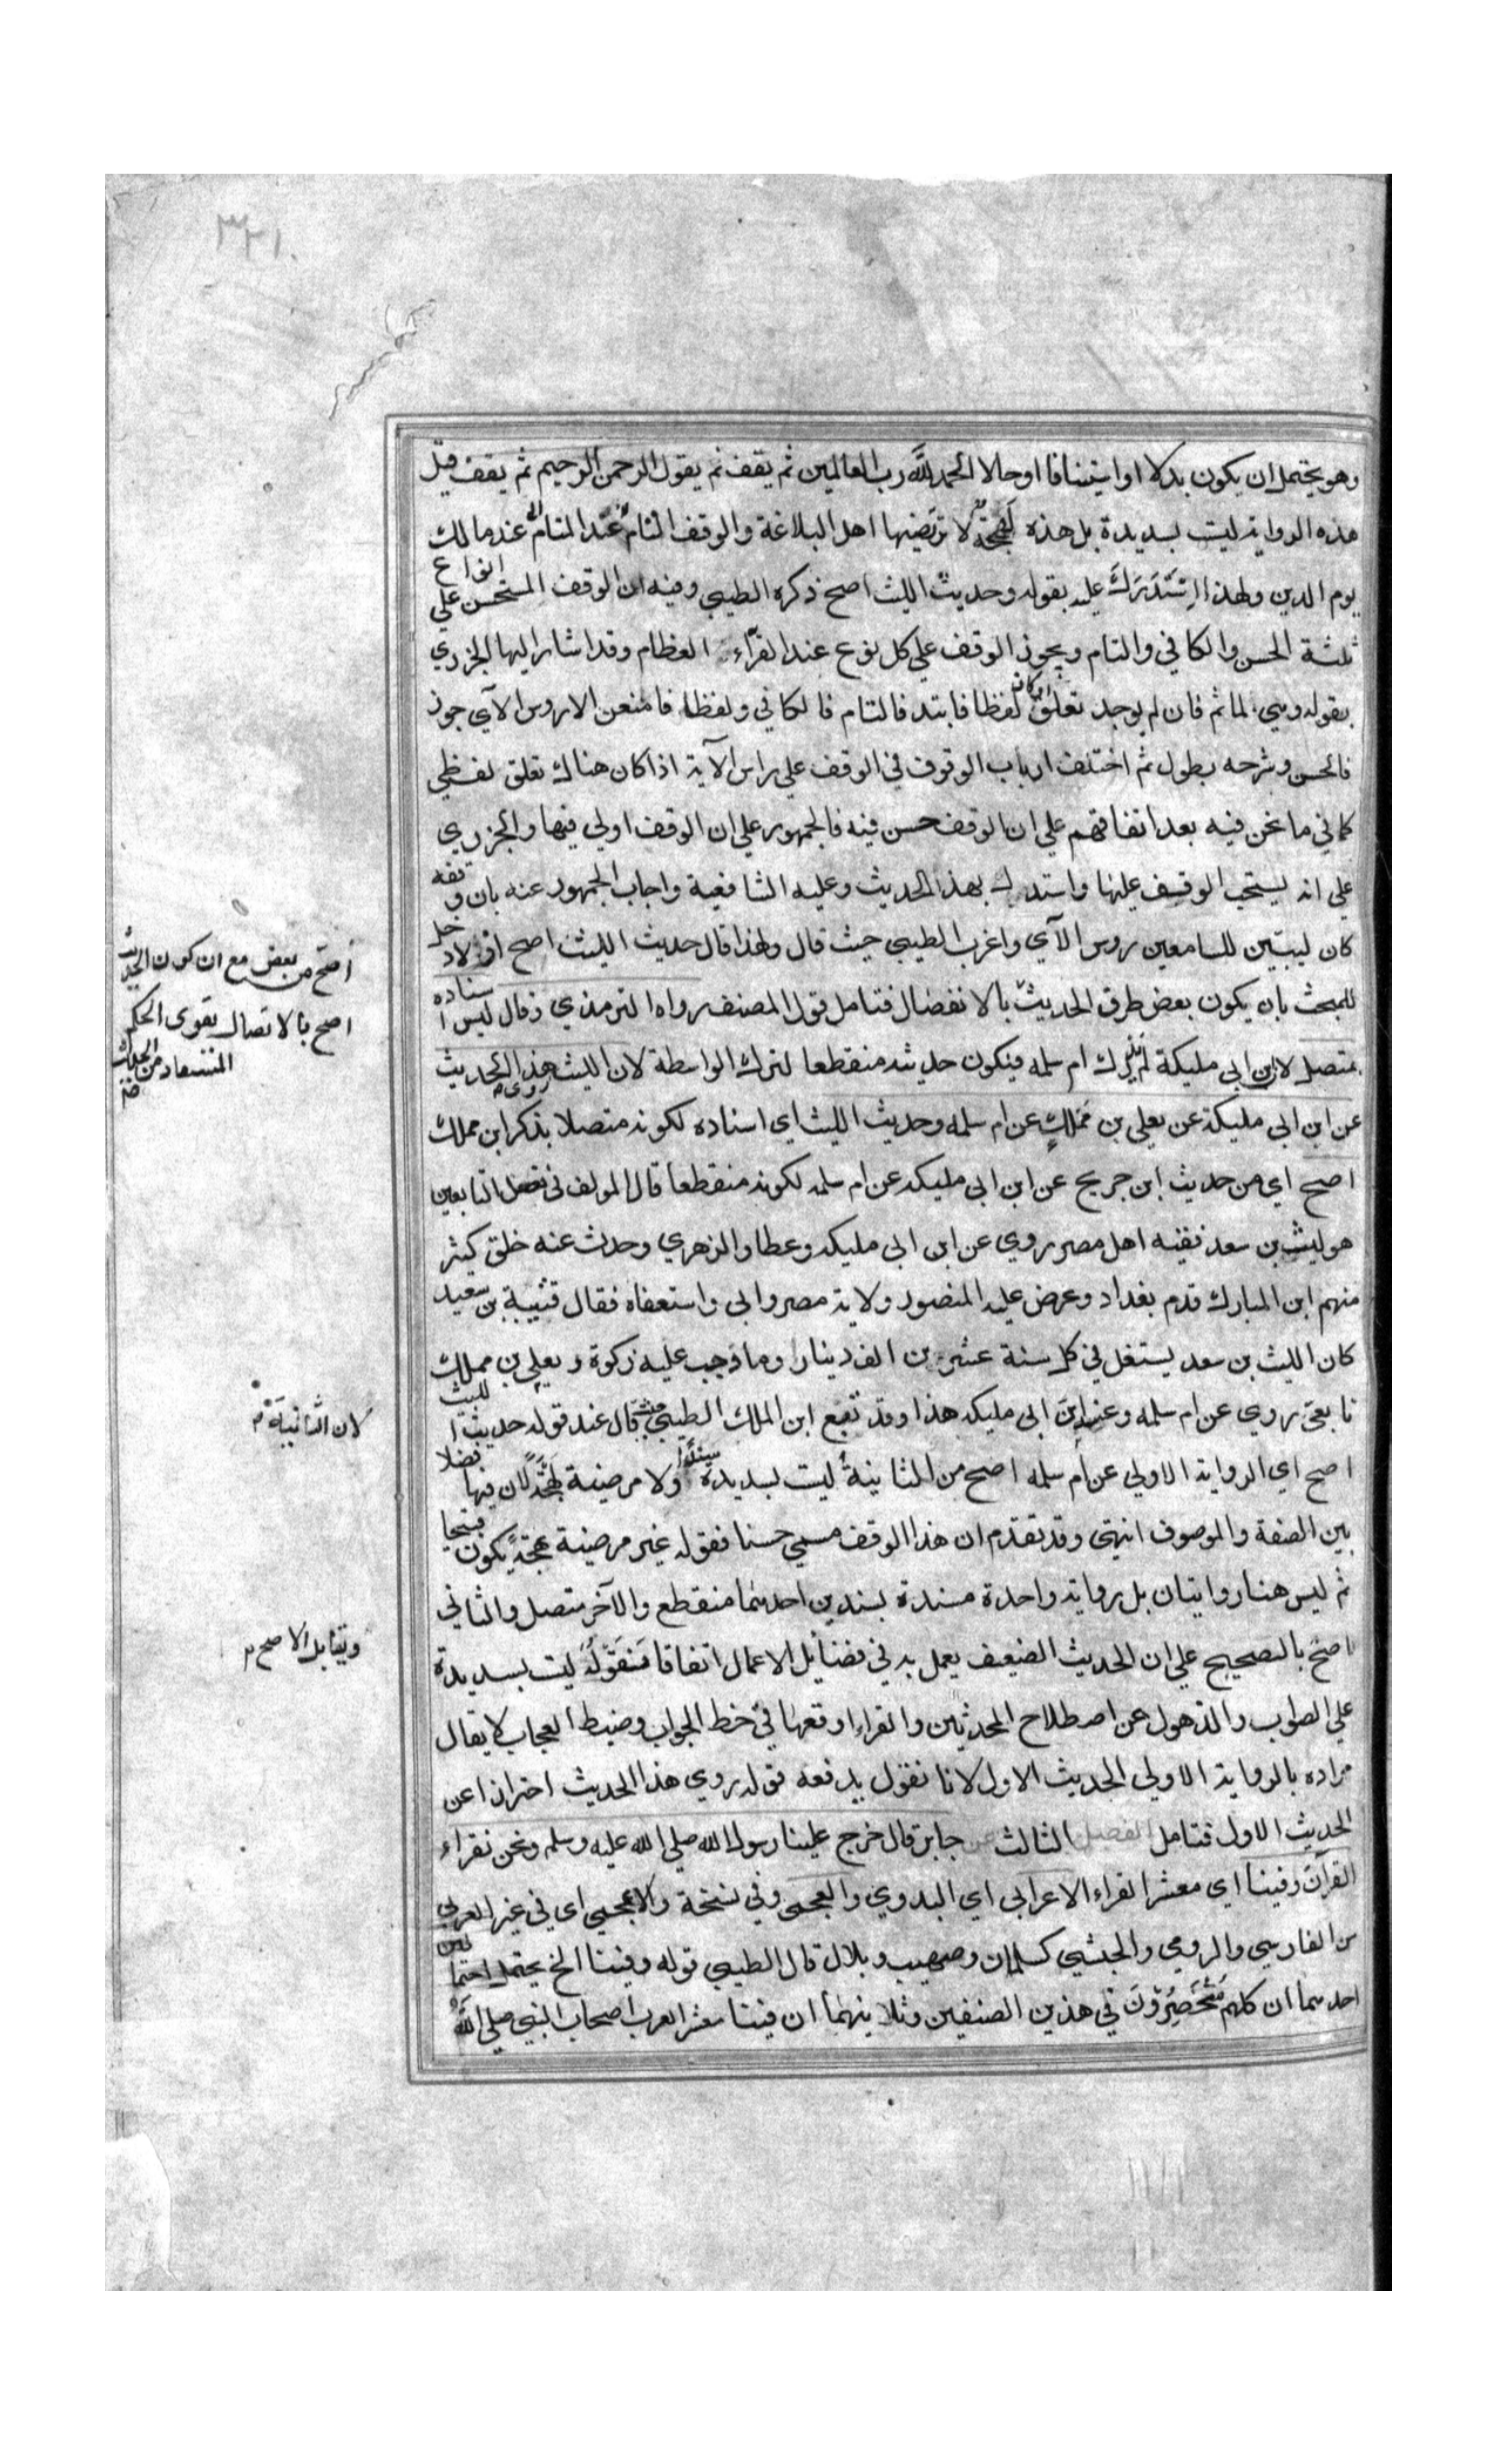 ٣٢١
وهو يحتمل ان يكون بدلا او استينافا او حالا الحمد لله رب العالمين ثم يقف ثم يقول الرحمن الرحيم ثم يقف قيل
هذه الرواية ليست بسديدة بل هذه لهجة لا ترتضيها اهل البلاغة والوقف التام عند مالك
يوم الدين ولهذا استدرك عليه بقوله وحديث الليث اصح ذكره الطيبي وفيه ان الوقف المستحسن علي انواع
ثلثة الحسن والكافي والتام ويجوز الوقف علي كل نوع عند القرآء العظام وقد اشار اليها الجزري
بقوله وهي لما تم فان لم يوجد تعلق او كان لفظا فابتد فالتام فالكافي ولفظا فامنعن الا روس الآي جوز
فالحسن وشرحه يطول ثم اختلف ارباب الوقوف في الوقف علي راس الآية اذا كان هناك تعلق لفظي
كما في ما نحن فيه بعد اتفاقهم علي ان الوقف حسن فيه فالجمهور علي ان الوقف اولي فيها والجزري
علي انه يستحب الوقف عليها واستدل بهذا الحديث وعليه الشافعية واجاب الجمهور عنه بان وقفه
كان ليبين للسامعين روس الآي واغرب الطيبي حيث قال ولهذا قال حديث الليث اصح اذ لا دخل
للمبحث بان يكون بعض طرق الحديث بالانفصال فتامل قول المصنف رواه الترمذي وقال ليس اسناده
بمتصل لان ابن ابي مليكة لم يدرك ام سلمه فيكون حديثه منقطعا لترك الواسطة لان الليث روى هذا الحديث
عن ابن ابي مليكة عن يعلي بن مملك عن ام سلمه وحديث الليث اي اسناده لكونه متصلا بذكر ابن مملك
اصح اي من حديث ابن جريج عن ابن ابي مليكه عن ام سلمه لكونه منقطعا قال المولف في فصل التابعين
هو ليث بن سعد فقيه اهل مصر روي عن ابن ابي مليكه وعطا والزهري وحدث عنه خلق كثير
منهم ابن المبارك قدم بغداد وعرض عليه المنصور ولاية مصر وابي واستعفاه فقال قتيبة بن سعيد
كان الليث بن سعد يستغل في كل سنة عشرين الف دينار وما وجب عليه زكوة ويعلي بن مملك
تابعي روي عن ام سلمه وعنه ابن ابي مليكه هذا وقد تبع ابن الملك الطيبي حيث قال عند قوله حديث الليث
اصح اي الرواية الاولي عن ام سلمه اصح من الثانية ليست بسديدة سندا ولا مرضية لهجة لان فيها فصلا
بين الصفة والموصوف انتهي وقد تقدم ان هذا الوقف مسمي حسنا فقوله غير مرضية لهجة يكون قبيحا
ثم ليس هنا روايتان بل رواية واحدة مسندة بسندين احدهما منقطع والآخر متصل والثاني
اصح بالصحيح علي ان الحديث الضعيف يعمل به في فضائل الاعمال اتفاقا فقوله ليست بسديدة
علي الصواب والذهول عن اصطلاح المحدثين والقراء اوقعها في خط الجواب وضبط العجاب لا يقال
مراده بالرواية الاولي الحديث الاول لانا نقول يدفعه قوله روي هذا الحديث احترازا عن
الحديث الاول فتامل الفصل الثالث عن جابر قال خرج علينا رسول الله صلي الله عليه وسلم ونحن نقراء
القرآن وفينا اي معشر القراء الاعرابي اي البدوي والعجمي وفي نسخة والاعجمي اي في غير العربي
من الفارسي والرومي والحبشي كسلمان وصهيب وبلال قال الطيبي قوله وفينا الخ يحتمل احتمالين
احدهما ان كلهم منحصرون في هذين الصنفين وثلا ينهما ان فينا معشر العرب اصحاب النبي صلي الله
اصح من بعض مع ان كون الحديث
اصح بالاتصال يقوى الحكم
المستفاد من الحديث
لان الثانية م
ويقابل الاصح م